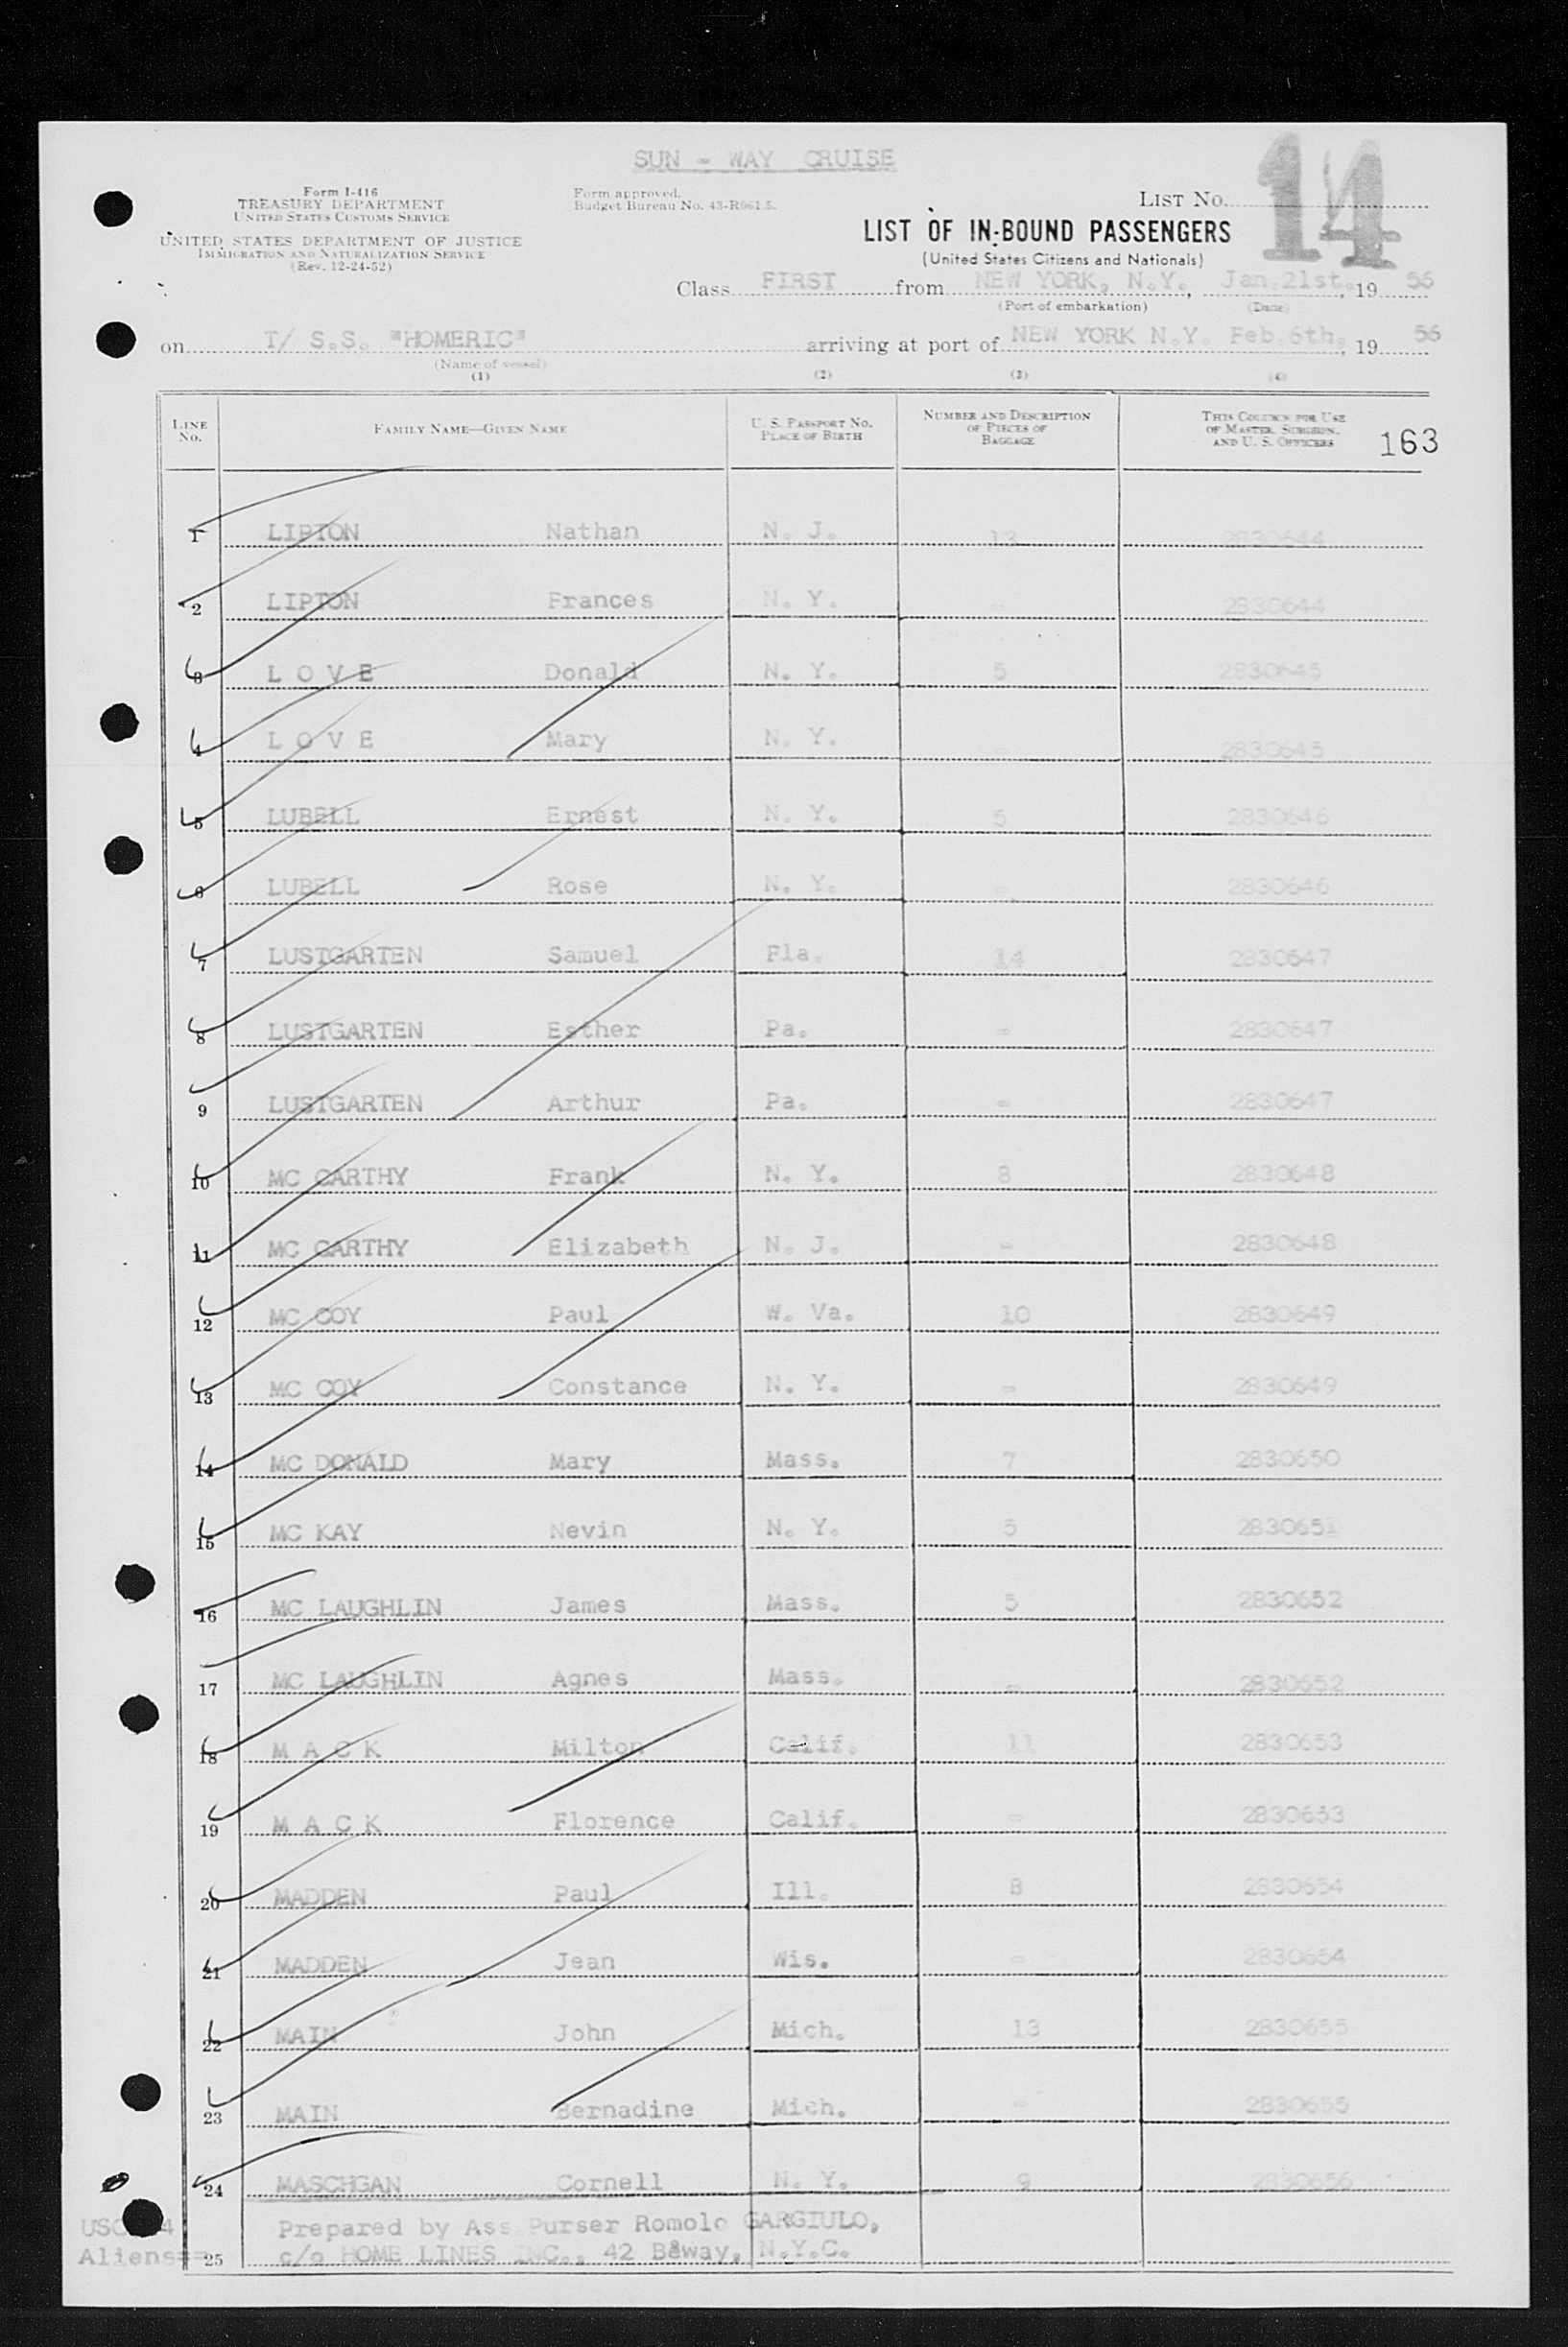 SUN - WAY CRUISE
Form I-416
TREASURY DEPARTMENT
UNITED STATES CUSTOMS SERVICE
UNITED STATES DEPARTMENT OF JUSTICE
IMMIGRATION AND NATURALIZATION SERVICE
(Rev. 12-24-52)
Form approved.
Budget Bureau No. 43-R061.5.
LIST No. 14
LIST OF IN-BOUND PASSENGERS
(United States Citizens and Nationals)
Class FIRST from NEW YORK, N.Y., Jan.21st., 19 56
(Port of embarkation) (Date)
on T/ S.S. "HOMERIC" arriving at port of NEW YORK N.Y. Feb.6th, 19 56
(Name of vessel)
(1) (2) (3) (4)
LINE No. FAMILY NAME—GIVEN NAME U. S. PASSPORT NO. PLACE OF BIRTH NUMBER AND DESCRIPTION OF PIECES OF BAGGAGE THIS COLUMN FOR USE OF MASTER, SURGEON, AND U. S. OFFICERS 163
1 LIPTON Nathan N. J. 13 2830644
2 LIPTON Frances N. Y. - 2830644
3 L O V E Donald N. Y. 5 2830645
4 L O V E Mary N. Y. 2830645
5 LUBELL Ernest N. Y. 5 2830646
6 LUBELL Rose N. Y. - 2830646
7 LUSTGARTEN Samuel Fla. 14 2830647
8 LUSTGARTEN Esther Pa. - 2830647
9 LUSTGARTEN Arthur Pa. - 2830647
10 MC CARTHY Frank N. Y. 8 2830648
11 MC CARTHY Elizabeth N. J. - 2830648
12 MC COY Paul W. Va. 10 2830649
13 MC COY Constance N. Y. - 2830649
14 MC DONALD Mary Mass. 7 2830650
15 MC KAY Nevin N. Y. 5 2830651
16 MC LAUGHLIN James Mass. 5 2830652
17 MC LAUGHLIN Agnes Mass. - 2830652
18 M A C K Milton Calif. 11 2830653
19 M A C K Florence Calif. - 2830653
20 MADDEN Paul Ill. 8 2830654
21 MADDEN Jean Wis. - 2830654
22 MAIN John Mich. 13 2830655
23 MAIN Bernadine Mich. - 2830655
24 MASCHGAN Cornell N. Y. 9 2830656
Prepared by Ass.Purser Romolo GARGIULO,
Aliens== 25 c/o HOME LINES INC., 42 B&way, N.Y.C.